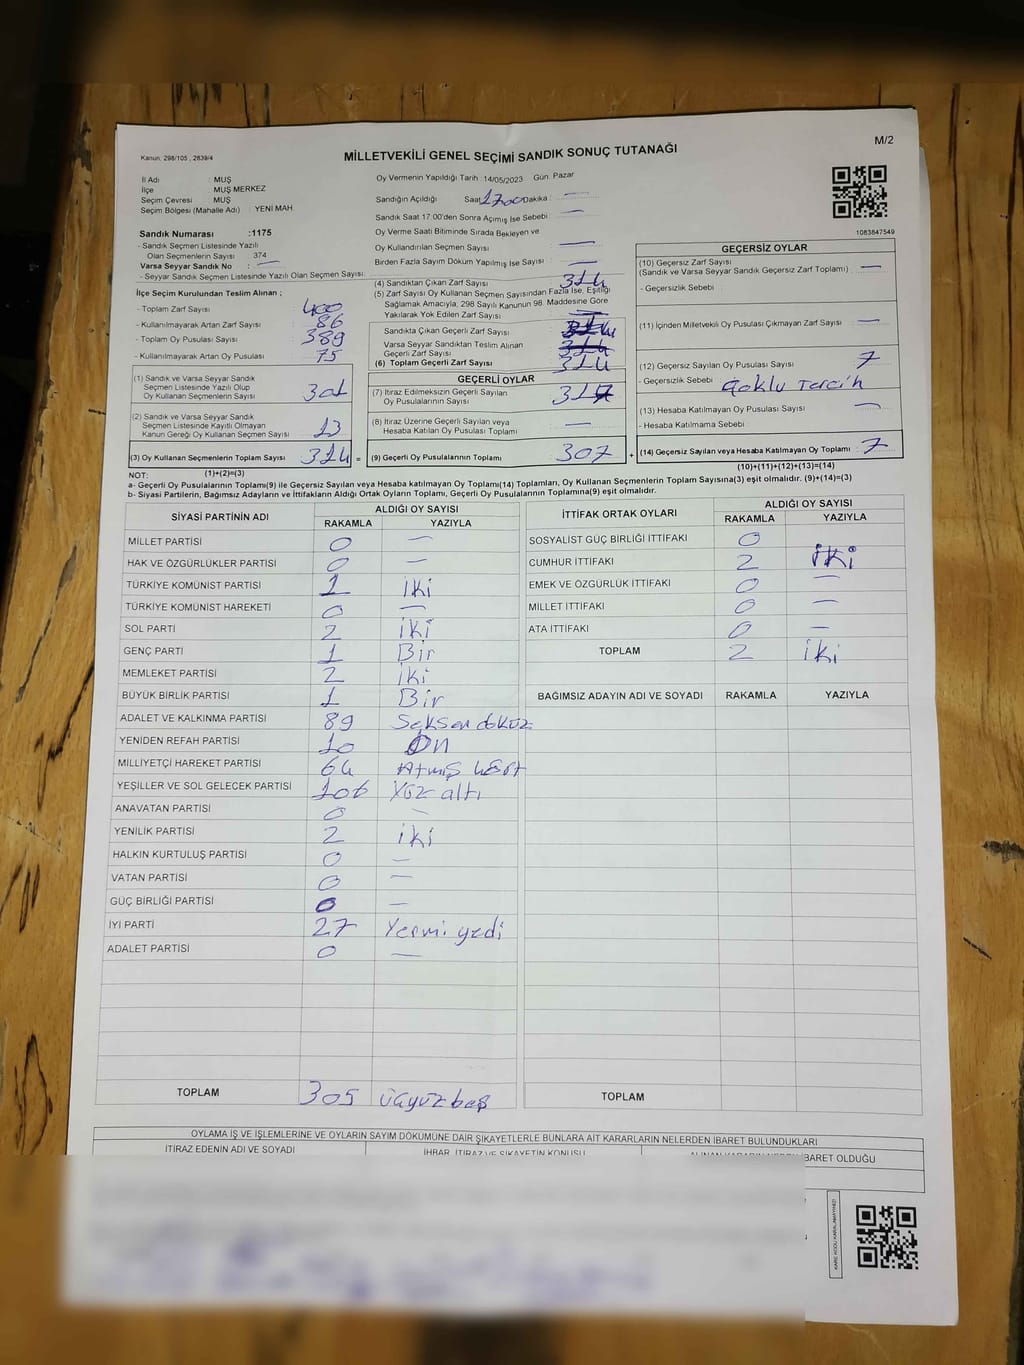 Kanun, 298/105 , 2839/4
M/2
MİLLETVEKİLİ GENEL SEÇİMİ SANDIK SONUÇ TUTANAĞI
İl Adı : MUŞ
İlçe : MUŞ MERKEZ
Seçim Çevresi : MUŞ
Seçim Bölgesi (Mahalle Adı) : YENİ MAH.
Sandık Numarası :1175
- Sandık Seçmen Listesinde Yazılı
Olan Seçmenlerin Sayısı 374
Varsa Seyyar Sandık No : —
- Seyyar Sandık Seçmen Listesinde Yazılı Olan Seçmen Sayısı:
Oy Vermenin Yapıldığı Tarih : 14/05/2023 Gün. Pazar
Sandığın Açıldığı Saat: 17.00 Dakika : —
Sandık Saat 17:00'den Sonra Açımış İse Sebebi : —
Oy Verme Saati Bitiminde Sırada Bekleyen ve
Oy Kullandırılan Seçmen Sayısı : —
Birden Fazla Sayım Döküm Yapılmış İse Sayısı : —
1083847549
İlçe Seçim Kurulundan Teslim Alınan ;
- Toplam Zarf Sayısı : 400
- Kullanılmayarak Artan Zarf Sayısı : 86
- Toplam Oy Pusulası Sayısı : 389
- Kullanılmayarak Artan Oy Pusulası : 75
(1) Sandık ve Varsa Seyyar Sandık
Seçmen Listesinde Yazılı Olup
Oy Kullanan Seçmenlerin Sayısı : 301
(2) Sandık ve Varsa Seyyar Sandık
Seçmen Listesinde Kayıtlı Olmayan
Kanun Gereği Oy Kullanan Seçmen Sayısı : 13
(3) Oy Kullanan Seçmenlerin Toplam Sayısı : 314 =
(1)+(2)=(3)
(4) Sandıktan Çıkan Zarf Sayısı : 314
(5) Zarf Sayısı Oy Kullanan Seçmen Sayısından Fazla İse, Eşitliği
Sağlamak Amacıyla, 298 Sayılı Kanunun 98. Maddesine Göre
Yakılarak Yok Edilen Zarf Sayısı : —
Sandıkta Çıkan Geçerli Zarf Sayısı :
Varsa Seyyar Sandıktan Teslim Alınan
Geçerli Zarf Sayısı :
(6) Toplam Geçerli Zarf Sayısı : 314
GEÇERLİ OYLAR
(7) İtiraz Edilmeksizin Geçerli Sayılan
Oy Pusulalarının Sayısı :
(8) İtiraz Üzerine Geçerli Sayılan veya
Hesaba Katılan Oy Pusulası Toplamı : —
(9) Geçerli Oy Pusulalarının Toplamı : 307 +
GEÇERSİZ OYLAR
(10) Geçersiz Zarf Sayısı
(Sandık ve Varsa Seyyar Sandık Geçersiz Zarf Toplamı) : —
- Geçersizlik Sebebi :
(11) İçinden Milletvekili Oy Pusulası Çıkmayan Zarf Sayısı : —
(12) Geçersiz Sayılan Oy Pusulası Sayısı : 7
- Geçersizlik Sebebi : Çoklu Tercih
(13) Hesaba Katılmayan Oy Pusulası Sayısı : —
- Hesaba Katılmama Sebebi :
(14) Geçersiz Sayılan veya Hesaba Katılmayan Oy Toplamı : 7
(10)+(11)+(12)+(13)=(14)
NOT:
a- Geçerli Oy Pusulalarının Toplamı(9) ile Geçersiz Sayılan veya Hesaba Katılmayan Oy Toplamı(14) Toplamları, Oy Kullanan Seçmenlerin Toplam Sayısına(3) eşit olmalıdır. (9)+(14)=(3)
b- Siyasi Partilerin, Bağımsız Adayların ve İttifakların Aldığı Ortak Oyların Toplamı, Geçerli Oy Pusulalarının Toplamına(9) eşit olmalıdır.
SİYASİ PARTİNİN ADI ALDIĞI OY SAYISI
RAKAMLA YAZIYLA
MİLLET PARTİSİ 0 —
HAK VE ÖZGÜRLÜKLER PARTİSİ 0 —
TÜRKİYE KOMÜNİST PARTİSİ 1 iki
TÜRKİYE KOMÜNİST HAREKETİ 0 —
SOL PARTİ 2 iki
GENÇ PARTİ 1 Bir
MEMLEKET PARTİSİ 2 iki
BÜYÜK BİRLİK PARTİSİ 1 Bir
ADALET VE KALKINMA PARTİSİ 89 Seksen dokuz
YENİDEN REFAH PARTİSİ 10 On
MİLLİYETÇİ HAREKET PARTİSİ 64 Atmış dört
YEŞİLLER VE SOL GELECEK PARTİSİ 106 Yüz altı
ANAVATAN PARTİSİ 0 —
YENİLİK PARTİSİ 2 iki
HALKIN KURTULUŞ PARTİSİ 0 —
VATAN PARTİSİ 0 —
GÜÇ BİRLİĞİ PARTİSİ 0 —
İYİ PARTİ 27 Yermi yedi
ADALET PARTİSİ 0 —
TOPLAM 305 üçyüz beş
İTTİFAK ORTAK OYLARI ALDIĞI OY SAYISI
RAKAMLA YAZIYLA
SOSYALİST GÜÇ BİRLİĞİ İTTİFAKI 0
CUMHUR İTTİFAKI 2 iki
EMEK VE ÖZGÜRLÜK İTTİFAKI 0 —
MİLLET İTTİFAKI 0 —
ATA İTTİFAKI 0 —
TOPLAM 2 iki
BAĞIMSIZ ADAYIN ADI VE SOYADI RAKAMLA YAZIYLA
TOPLAM
OYLAMA İŞ VE İŞLEMLERİNE VE OYLARIN SAYIM DÖKÜMÜNE DAİR ŞİKAYETLERLE BUNLARA AİT KARARLARIN NELERDEN İBARET BULUNDUKLARI
İTİRAZ EDENİN ADI VE SOYADI İHBAR, İTİRAZ VE ŞİKAYETİN KONUSU ALINAN KARARIN NEDEN İBARET OLDUĞU